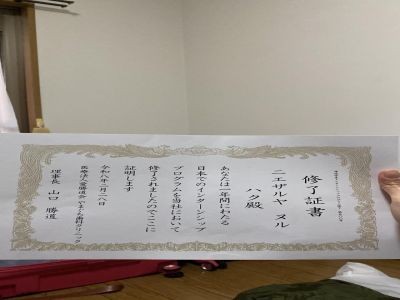 修了証書
ニエザルヤ ヌル
ハク殿
あなたは一年間にわたる
日本でのインターンシップ
プログラムを当社において
修了されましたのでここに
証明します
令和八年二月二八日
理事長 山口 勝道